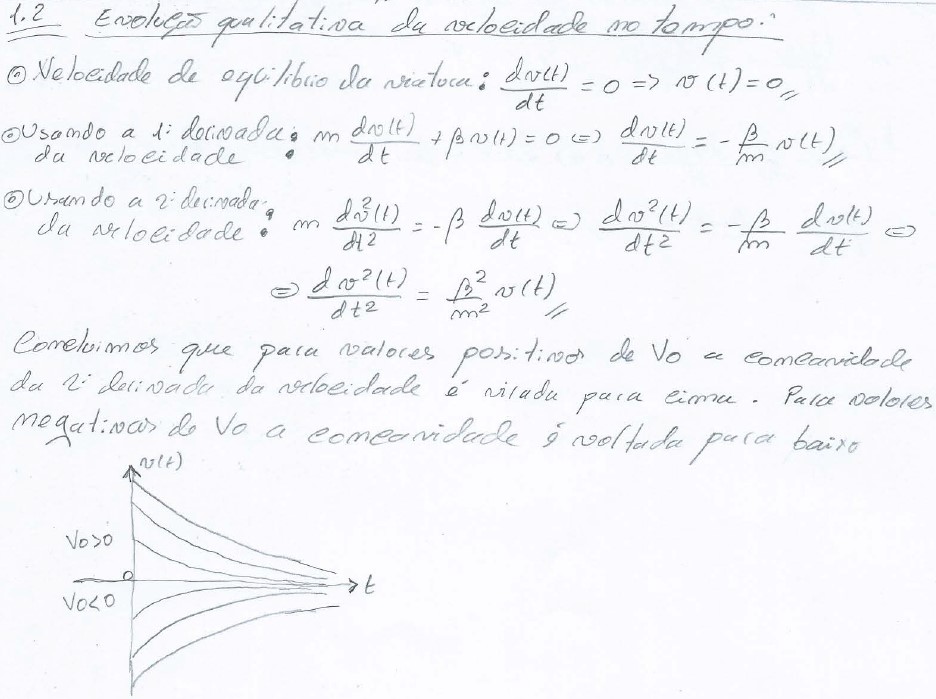 1.2 Evolução qualitativa da velocidade no tempo:
⊙ Velocidade de equilíbrio da viatura: dv(t)/dt = 0 => v(t) = 0,,
⊙ Usando a 1ª derivada da velocidade: m dv(t)/dt + βv(t) = 0 <=> dv(t)/dt = -β/m v(t),,
⊙ Usando a 2ª derivada da velocidade: m d²v(t)/dt² = -β dv(t)/dt <=> dv²(t)/dt² = -β/m dv(t)/dt <=>
<=> dv²(t)/dt² = β²/m² v(t),,
Concluimos que para valores positivos de Vo a concavidade
da 2ª derivada da velocidade é virada para cima. Para valores
negativos de Vo a concavidade é voltada para baixo
v(t)
Vo>0
0
t
Vo<0